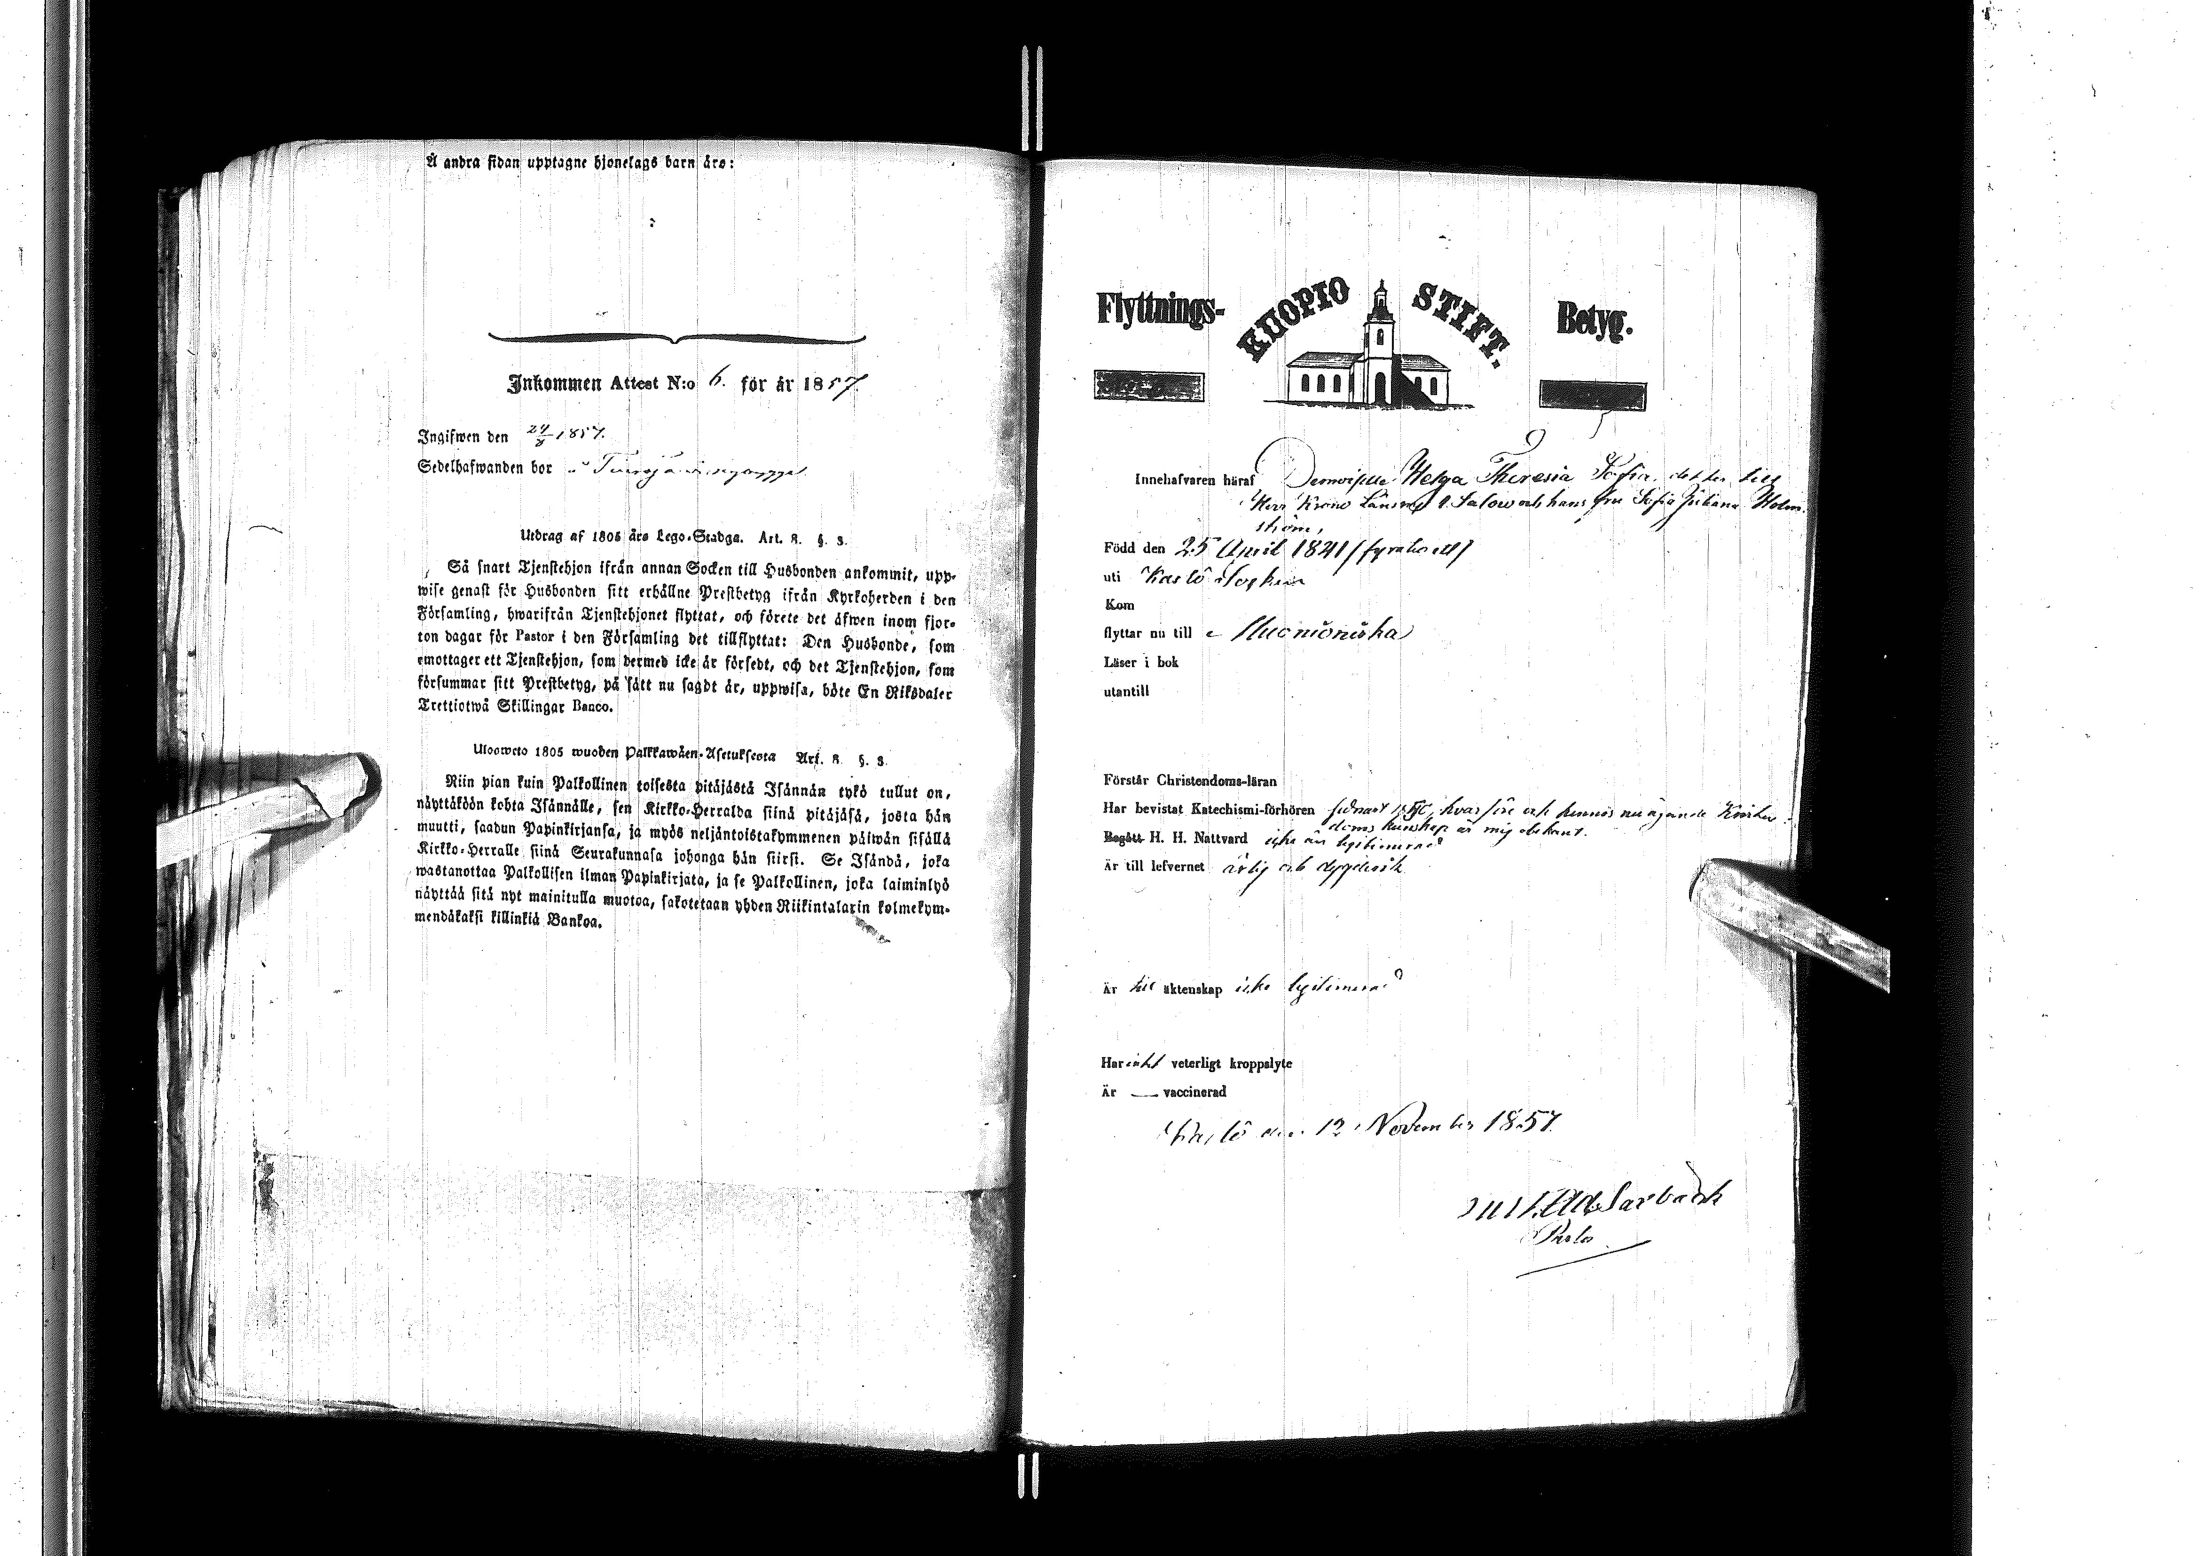 Å andra sidan upptagne hjonelags barn äro:
Inkommen Attest N:o 6. för år 1857.
Ingifwen den 24/8 1857.
Sedelhafwanden bor
Utdrag af 1805 års Lego-Stadga. Art. 8. §. 3.
Så snart Tjenstehjon ifrån annan Socken till Husbonden ankommit, upp-
wise genast för Husbonden sitt erhållne Prestbetyg ifrån Kyrkoherden i den
Församling, hwarifrån Tjenstehjonet flyttat, och förete det äfwen inom fjor-
ton dagar för Pastor i den Församling det tillflyttat: Den Husbonde, som
emottager ett Tjenstehjon, som dermed icke är försedt, och det Tjenstehjon, som
försummar sitt Prestbetyg, på sätt nu sagdt är, uppwisa, böte En Riksdaler
Trettiotwå Skillingar Banco.
Uloosweto 1805 wuoden Palkkawäen-Asetuksesta Art. 8. §. 3.
Niin pian kuin Palkollinen toisesta pitäjästä Isännän tykö tullut on,
näyttäköön kohta Isännälle, sen Kirkko-Herralda siinä pitäjäsä, josta hän
muutti, saadun Papinkirjansa, ja myös neljäntoistakymmenen päiwän sisällä
Kirkko-Herralle siinä Seurakunnasa johonga hän siirsi. Se Isändä, joka
wastanottaa Palkollisen ilman Papinkirjata, ja se Palkollinen, joka laiminlyö
näyttää sitä nyt mainitulla muotoa, sakotetaan yhden Riikintalarin kolmekym-
mendäkaksi killinkiä Bankoa.
Flyttnings- KUOPIO STIFT. Betyg.
Innehafvaren häraf Demoiselle Helga Theresia Sofia, dotter till
Herr Krono Länsm. Salow och hans fru Sofia Juliana Holm-
ström,
Född den 25 April 1841 (fyratioett)
uti Karlö Socken
Kom
flyttar nu till Muonioniska
Läser i bok
utantill
Förstår Christendoms-läran
Har bevistat Katechismi-förhören hvarföre och hennes nu ägande Kristen-
doms kunskap är mig obekant.
Begått H. H. Nattvard icke än legitimerad
Är till lefvernet ärlig och dygderik
Är till äktenskap icke legitimerad
Har intet veterligt kroppslyte
Är — vaccinerad
Karlö den 12 November 1857.
Sarbäck
Pastor